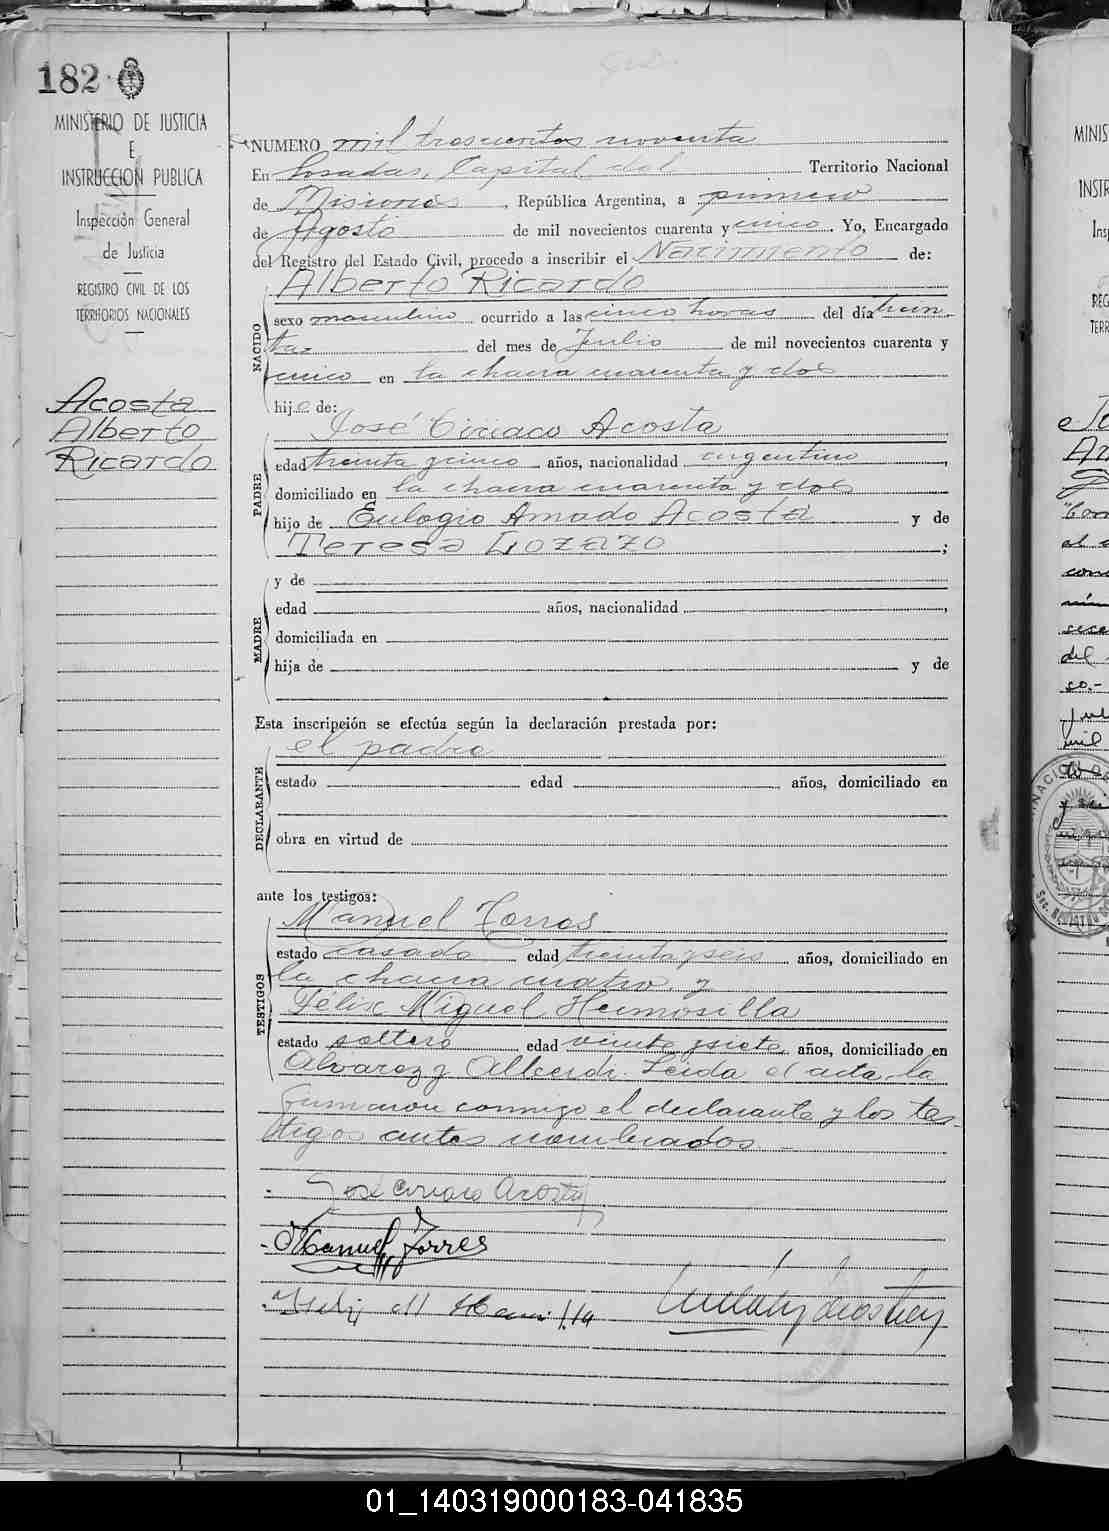 182
MINISTERIO DE JUSTICIA
E
INSTRUCCION PUBLICA
Inspección General
de Justicia
REGISTRO CIVIL DE LOS
TERRITORIOS NACIONALES
Acosta
Alberto
Ricardo
NUMERO mil trescientos noventa
En Posadas, Capital del Territorio Nacional
de Misiones, República Argentina, a primero
de Agosto de mil novecientos cuarenta y cinco. Yo, Encargado
del Registro del Estado Civil, procedo a inscribir el Nacimiento de:
NACIDO
Alberto Ricardo
sexo masculino ocurrido a las cinco horas del día trein
ta del mes de Julio de mil novecientos cuarenta y
cinco en la chacra cuarenta y dos
hijo de:
PADRE
José Ciriaco Acosta
edad treinta y cinco años, nacionalidad argentino,
domiciliado en la chacra cuarenta y dos
hijo de Eulogio Amado Acosta y de
Teresa Lozazo;
MADRE
y de
edad años, nacionalidad,
domiciliada en
hija de y de
Esta inscripción se efectúa según la declaración prestada por:
DECLARANTE
el padre
estado edad años, domiciliado en
obra en virtud de
ante los testigos:
TESTIGOS
Manuel Torres
estado casado edad treinta y seis años, domiciliado en
la chacra cuatro y
Félix Miguel Hermosilla
estado soltero edad veinte y siete años, domiciliado en
Alvarez y Alberdi. Leida el acta, la
firmaron conmigo el declarante y los tes-
tigos antes nombrados.
José Ciriaco Acosta
Manuel Torres
01_140319000183-041835